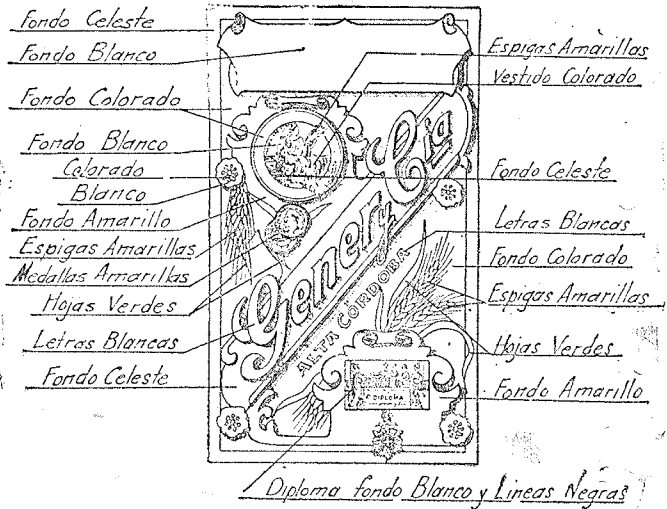 Fondo Celeste
Fondo Blanco
Fondo Colorado
Fondo Blanco
Colorado
Blanco
Fondo Amarillo
Espigas Amarillas
Medallas Amarillas
Hojas Verdes
Letras Blancas
Fondo Celeste
Genery Cia
ALTA CÓRDOBA
DIPLOMA
Espigas Amarillas
Vestido Colorado
Fondo Celeste
Letras Blancas
Fondo Colorado
Espigas Amarillas
Hojas Verdes
Fondo Amarillo
Diploma fondo Blanco y Lineas Negras